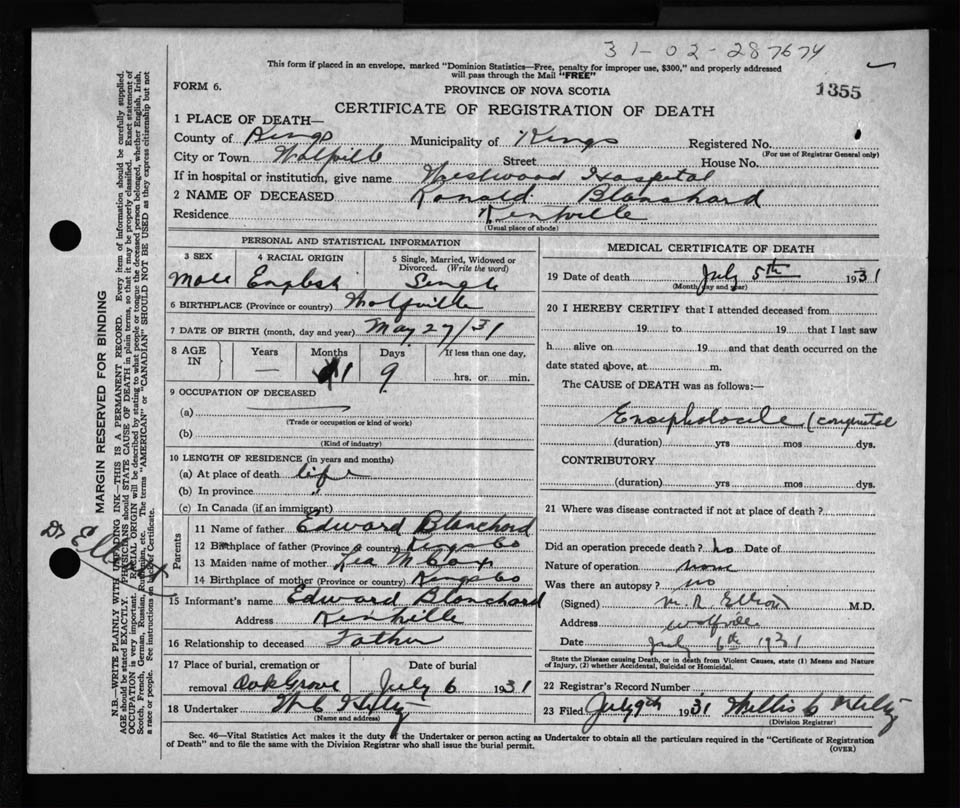 31-02-287674
This form if placed in an envelope, marked "Dominion Statistics—Free, penalty for improper use, $300," and properly addressed
will pass through the Mail "FREE"
FORM 6.
PROVINCE OF NOVA SCOTIA
1355
CERTIFICATE OF REGISTRATION OF DEATH
1 PLACE OF DEATH—
County of Kings Municipality of Kings Registered No.
(For use of Registrar General only)
City or Town Wolfville Street House No.
If in hospital or institution, give name Westwood Hospital
2 NAME OF DECEASED Ronald Blanchard
Residence Kentville
(Usual place of abode)
PERSONAL AND STATISTICAL INFORMATION
3 SEX
4 RACIAL ORIGIN
5 Single, Married, Widowed or
Divorced. (Write the word)
Male English Single
6 BIRTHPLACE (Province or country) Wolfville
7 DATE OF BIRTH (month, day and year) May 27/31
8 AGE
IN
Years Months Days If less than one day,
— 1 9 hrs. or min.
9 OCCUPATION OF DECEASED
(a)
(Trade or occupation or kind of work)
(b)
(Kind of industry)
10 LENGTH OF RESIDENCE (in years and months)
(a) At place of death life
(b) In province
(c) In Canada (if an immigrant)
Parents
11 Name of father Edward Blanchard
12 Birthplace of father (Province or country) Kings Co
13 Maiden name of mother M
14 Birthplace of mother (Province or country) Kings Co
15 Informant's name Edward Blanchard
Address Kentville
16 Relationship to deceased Father
17 Place of burial, cremation or Date of burial
removal Oak Grove July 6 1931
18 Undertaker
(Name and address)
MEDICAL CERTIFICATE OF DEATH
19 Date of death July 5th 1931
(Month, day and year)
20 I HEREBY CERTIFY that I attended deceased from
19 to 19 that I last saw
h alive on 19 and that death occurred on the
date stated above, at m.
The CAUSE of DEATH was as follows:—
Encephalocele (congenital
(duration) yrs mos dys.
CONTRIBUTORY
(duration) yrs mos dys.
21 Where was disease contracted if not at place of death?
Did an operation precede death? no Date of
Nature of operation none
Was there an autopsy? no
(Signed) M.R. Elliott M.D.
Address Wolfville
Date July 6th 1931
State the Disease causing Death, or in death from Violent Causes, state (1) Means and Nature
of Injury, (2) whether Accidental, Suicidal or Homicidal.
22 Registrar's Record Number
23 Filed July 9th 1931 Willis C
(Division Registrar)
Sec. 46—Vital Statistics Act makes it the duty of the Undertaker or person acting as Undertaker to obtain all the particulars required in the "Certificate of Registration
of Death" and to file the same with the Division Registrar who shall issue the burial permit.
(OVER)
MARGIN RESERVED FOR BINDING
N.B.—WRITE PLAINLY WITH UNFADING INK—THIS IS A PERMANENT RECORD. Every item of information should be carefully supplied.
AGE should be stated EXACTLY. PHYSICIANS should STATE CAUSE OF DEATH in plain terms, so that it may be properly classified. Exact statement of
OCCUPATION is very important. RACIAL ORIGIN will be described by stating to what people or tongue the deceased person belonged, whether English, Irish,
Scotch, French, German, Russian, Ruthenian, etc. The terms "AMERICAN" or "CANADIAN" SHOULD NOT BE USED as they express citizenship but not
a race or people. See instructions on back of Certificate.
Dr Elliott